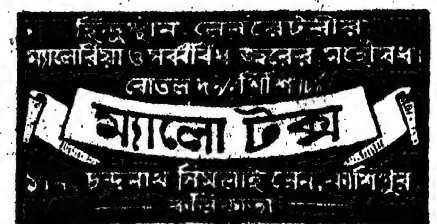 হিন্দুস্থান লেবরেটরীর
ম্যালেরিয়া ও সর্ব্ববিধ জ্বরের মহৌষধ।
বোতল শিশি
ম্যালো টক্স
চন্দ্রনাথ সিমলাই লেন, কাশিপুর
কলিকাতা